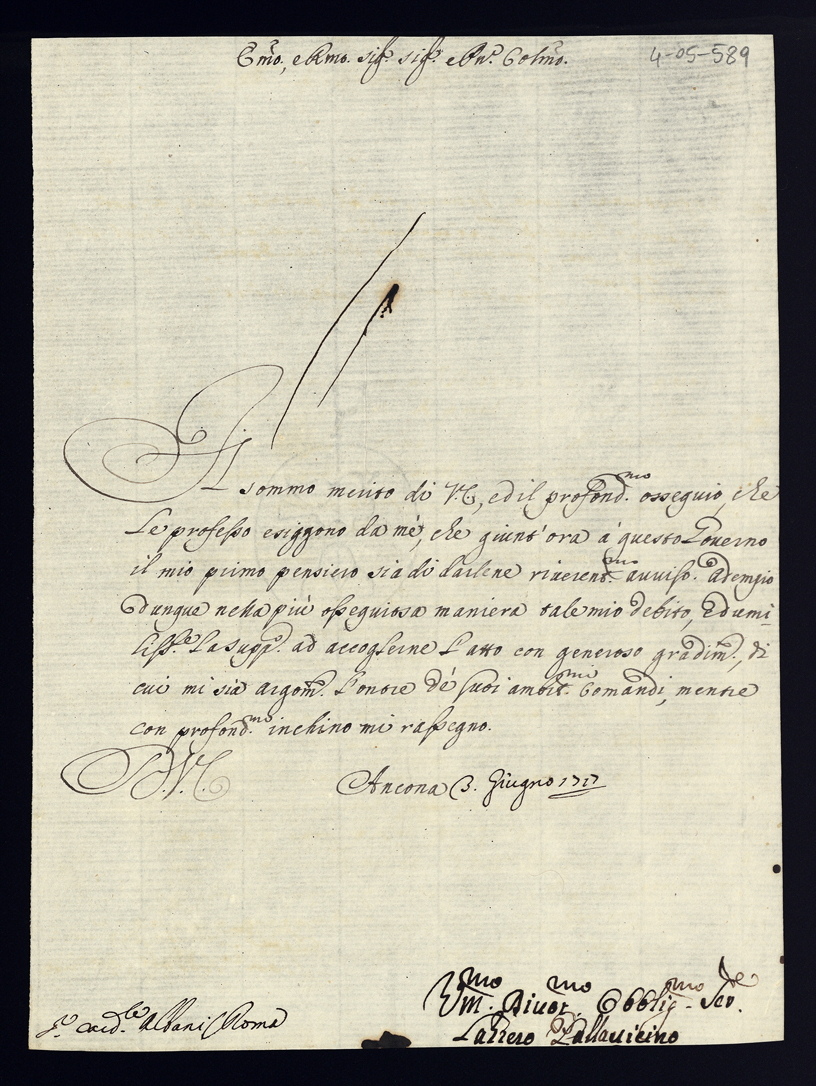 Emo, e Rmo. sig.r sig.r e Pn. Colmo.
4-05-589
Il sommo merito di V.E, ed il profond.mo ossequio, che
Le professo esiggono da mè, che giunt'ora a' questo Governo
il mio primo pensiero sia di darlene riverent.mo avviso. Adempio
dunque nella più ossequiosa maniera tale mio debito, ed umi-
liss.te La supp.o ad accoglierne l'atto con generoso gradim.o, di
cui mi sia argom.o l'onore de' suoi ambit.mi Comandi, mentre
con profond.mo inchino mi rassegno.
D.V.E
Ancona 3. Giugno 1717
S.r Card.le Albani Roma
Um.mo Divot.mo Obblig.mo Ser.re
Lazzero Pallavicino